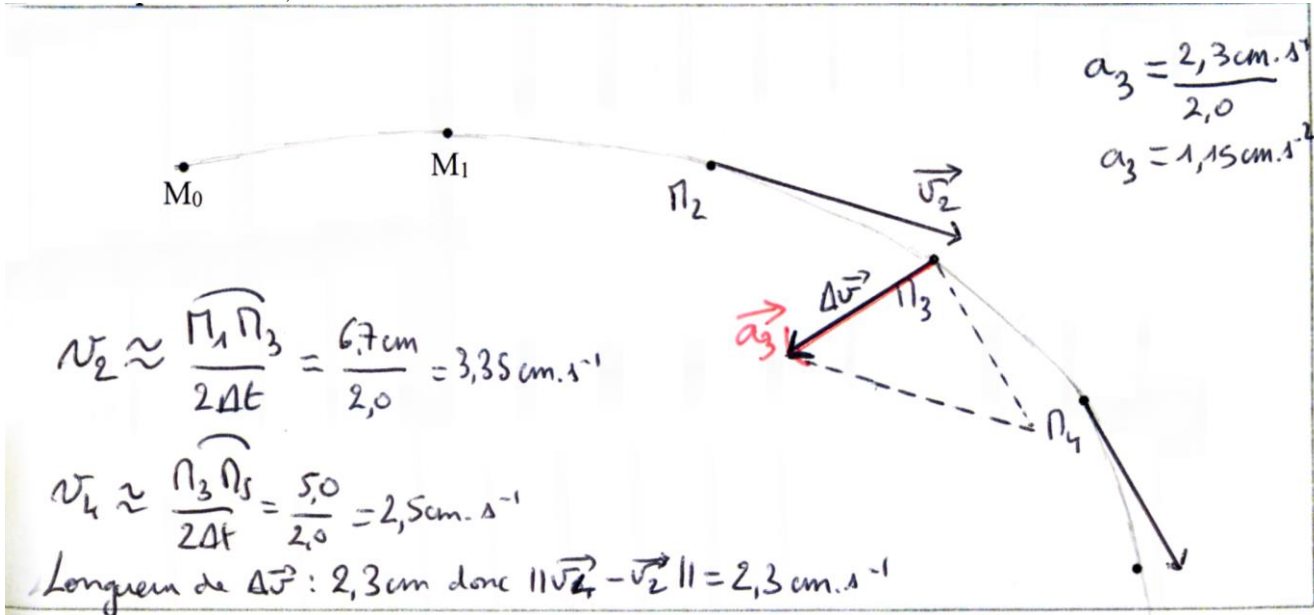 a₃ = 2,3cm.s⁻¹ / 2,0
a₃ = 1,15cm.s⁻²
M₀
M₁
M₂
v₂→
Δv→
M₃
a₃→
M₄
v₂ ≈ M₁M₃ / 2Δt = 6,7cm / 2,0 = 3,35 cm.s⁻¹
v₄ ≈ M₃M₅ / 2Δt = 5,0 / 2,0 = 2,5cm.s⁻¹
Longueur de Δv→ : 2,3cm donc ||v₄→ - v₂→|| = 2,3cm.s⁻¹